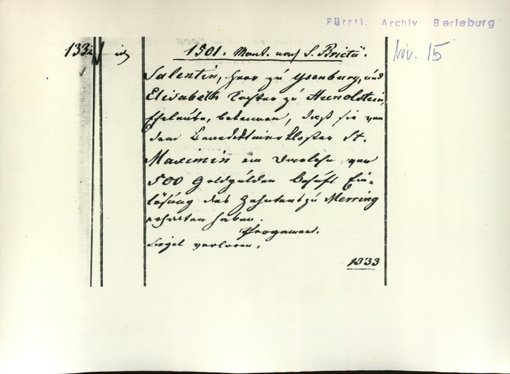 Fürstl. Archiv Berleburg
Nov. 15
1332
1501. Mont. nach S. Brictii.
Salentin, Herr zu Ysenburg, und
Elisabeth Tochter zu Hunoldstein,
Eheleute, bekennen, daß sie von
dem Benediktinerkloster St.
Maximin ein Darlehn von
500 Goldgülden behufs Ein-
lösung des Zehntens zu Merring
erhalten haben.
Pergament.
Siegel verloren.
1333